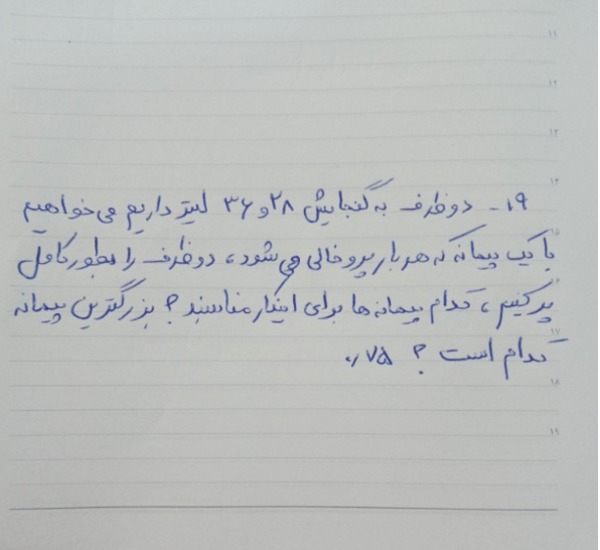 ۱۱
۱۲
۱۳
۱۴
۱۹- دو ظرف به گنجایش ۲۸ و ۳۶ لیتر داریم می‌خواهیم
با یک پیمانه که هر بار پر و خالی می‌شود، دو ظرف را بطور کامل
پر کنیم، کدام پیمانه‌ها برای اینکار مناسبند؟ بزرگترین پیمانه
۱۷
کدام است؟ ۰٫۷۵
۱۸
۱۹